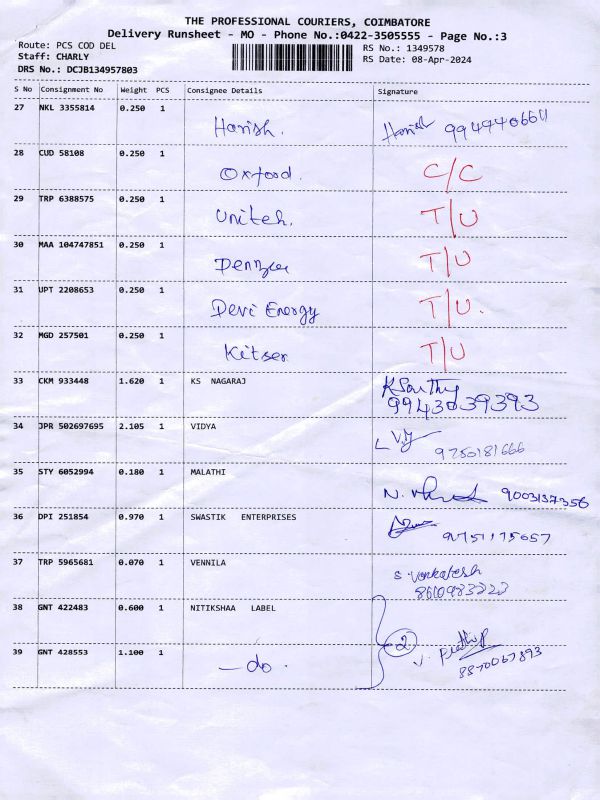 THE PROFESSIONAL COURIERS, COIMBATORE
Delivery Runsheet - MO - Phone No.:0422-3505555 - Page No.:3
Route: PCS COD DEL
RS No.: 1349578
Staff: CHARLY
RS Date: 08-Apr-2024
DRS No.: DCJB134957803
S No Consignment No Weight PCS Consignee Details Signature
27 NKL 3355814 0.250 1 Harish. Harish
28 CUD 58108 0.250 1 Oxfood. C/C
29 TRP 6388575 0.250 1 Uniteh. T/U
30 MAA 104747851 0.250 1 T/U
31 UPT 2208653 0.250 1 Devi Energy T/U.
32 MGD 257501 0.250 1 Kitser T/U
33 CKM 933448 1.620 1 KS NAGARAJ 9943039393
34 JPR 502697695 2.105 1 VIDYA 9750181666
35 STY 6052994 0.180 1 MALATHI 9003137356
36 DPI 251854 0.970 1 SWASTIK ENTERPRISES 9751175657
37 TRP 5965681 0.070 1 VENNILA S. Venkatesh
38 GNT 422483 0.600 1 NITIKSHAA LABEL
39 GNT 428553 1.100 1 —do. 2 8870067893